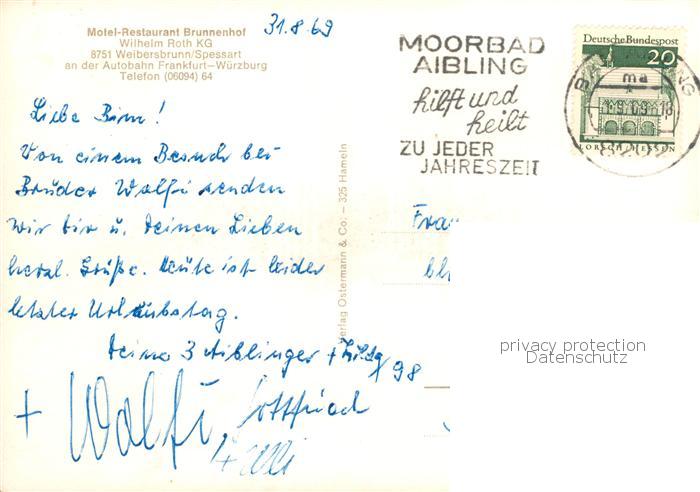 Motel-Restaurant Brunnenhof
Wilhelm Roth KG
8751 Weibersbrunn/Spessart
an der Autobahn Frankfurt–Würzburg
Telefon (06094) 64
31.8.69
MOORBAD
AIBLING
hilft und
heilt
ZU JEDER
JAHRESZEIT
Deutsche Bundespost
20
LORSCH/HESSEN
ma
1.9.69.-18
8202
Liebe
Von einem Besuch bei
Bruder Wolfi senden
wir dir u. deinen Lieben
herzl. Grüße. Heute ist leider
letzter Urlaubstag.
Deine 3 Aiblinger +
+ Wolfi
Gottfried
Verlag Ostermann & Co. – 325 Hameln
privacy protection
Datenschutz